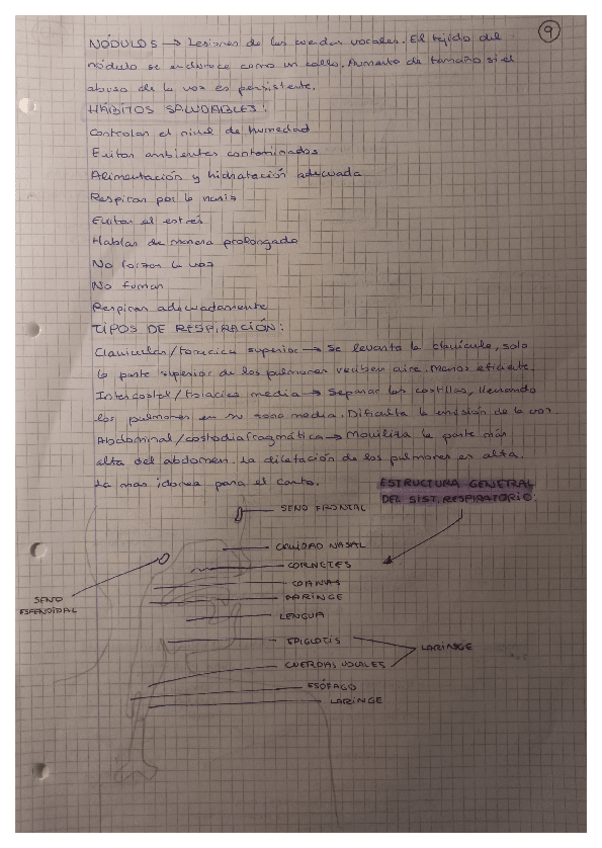 9
NÓDULOS → Lesiones de las cuerdas vocales. El tejido del
nódulo se endurece como un callo. Aumenta de tamaño si el
abuso de la voz es persistente.
HÁBITOS SALUDABLES:
Controlar el nivel de humedad
Evitar ambientes contaminados
Alimentación y hidratación adecuada
Respirar por la nariz
Evitar el estrés
Hablar de manera prolongada
No forzar la voz
No fumar
Respirar adecuadamente
TIPOS DE RESPIRACIÓN:
Clavicular/torácica superior → Se levanta la clavícula, solo
la parte superior de los pulmones reciben aire. Menos eficiente.
Intercostal/torácica media → Separar las costillas, llenando
los pulmones en su zona media. Dificulta la emisión de la voz.
Abdominal/costodiafragmática → Moviliza la parte más
alta del abdomen. La dilatación de los pulmones es alta.
La mas idonea para el canto.
ESTRUCTURA GENERAL
DEL SIST. RESPIRATORIO:
SENO FRONTAL
CAVIDAD NASAL
CORNETES
COANAS
FARINGE
SENO
ESFENOIDAL
LENGUA
EPIGLOTIS
LARINGE
CUERDAS VOCALES
ESÓFAGO
LARINGE